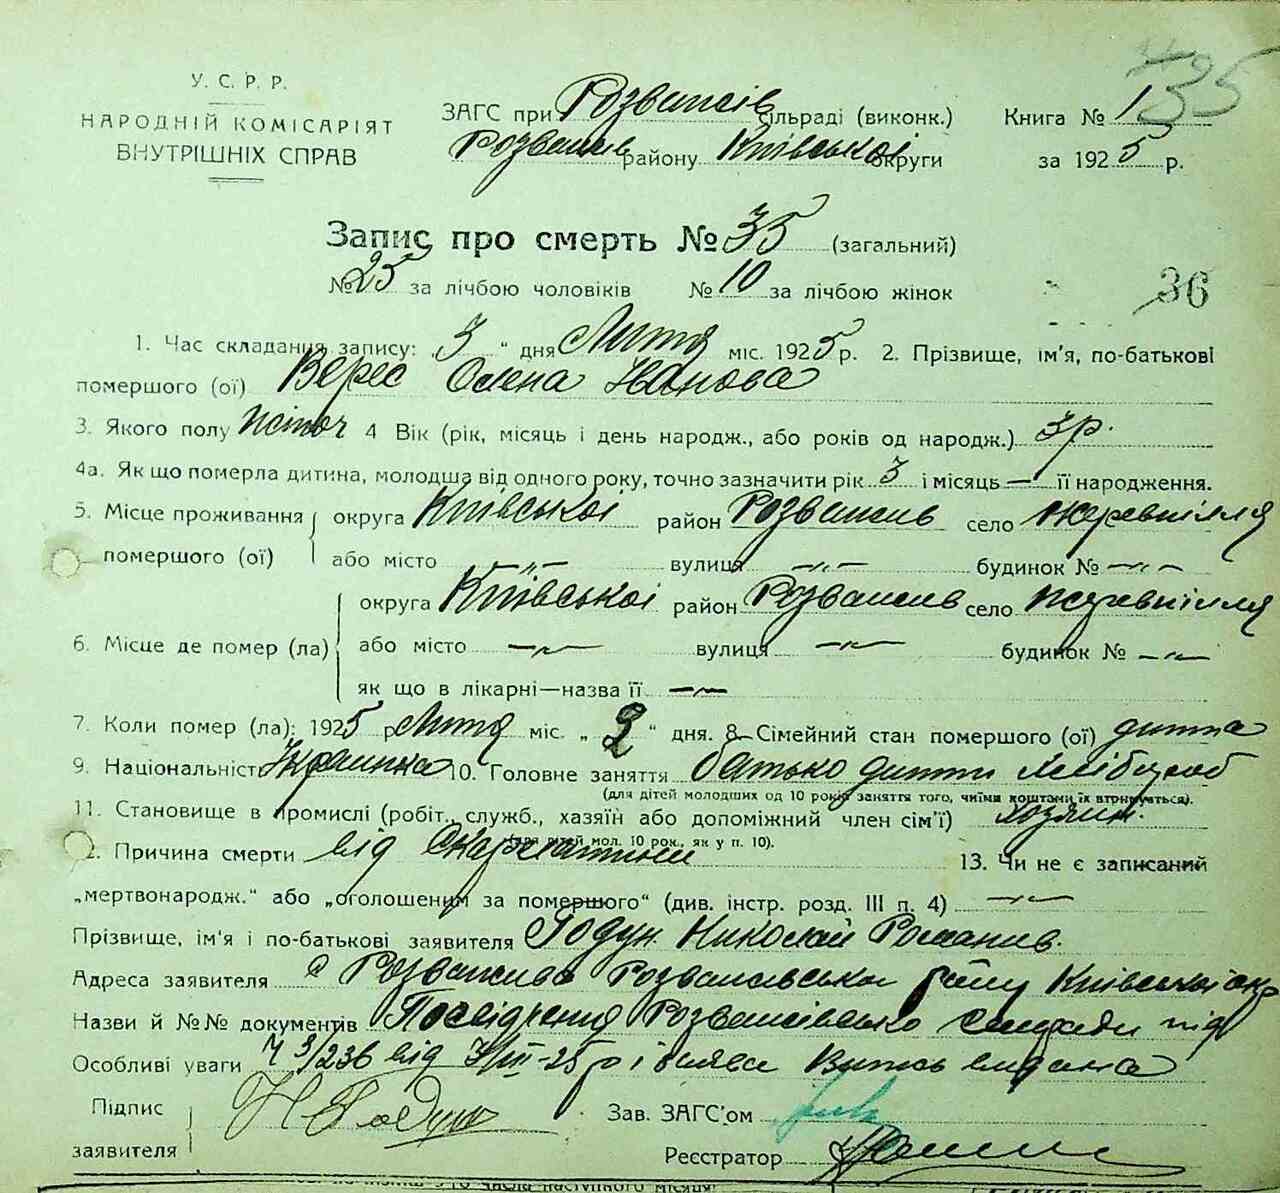 У. С. Р. Р.
НАРОДНІЙ КОМІСАРІЯТ
ВНУТРІШНІХ СПРАВ
ЗАГС при Розважів сільраді (виконк.) Книга № 1
Розважів району Київської округи за 1925 р.
Запис про смерть № 35 (загальний)
№ 25 за лічбою чоловіків № 10 за лічбою жінок
36
1. Час складання запису: „3“ дня Лютня міс. 1925 р. 2. Прізвище, ім'я, по-батькові
помершого (ої) Верес Олена Іванова
3. Якого полу жіноч 4 Вік (рік, місяць і день народж., або років од народж.) 3 р.
4а. Як що померла дитина, молодша від одного року, точно зазначити рік 3 і місяць — її народження.
5. Місце проживання помершого (ої) округа Київської район Розважив село Жеревпілля
або місто —„— вулиця —„— будинок № —„—
6. Місце де помер (ла) округа Київської район Розважив село Жеревпілля
або місто —„— вулиця —„— будинок № —„—
як що в лікарні—назва її —„—
7. Коли помер (ла): 1925 р. Лютня міс. „2“ дня. 8. Сімейний стан помершого (ої) дитина
9. Національність Українка 10. Головне заняття батько дитини хлібороб
(для дітей молодших од 10 років заняття того, чиїми коштами їх втримується).
11. Становище в промислі (робіт., служб., хазяїн або допоміжний член сім'ї) хозяин.
(для дітей мол. 10 рок., як у п. 10).
12. Причина смерти від Скарлатини 13. Чи не є записаний
„мертвонародж.“ або „оголошеним за помершого“ (див. інстр. розд. III п. 4) —„—
Прізвище, ім'я і по-батькові заявителя Годун Николай Романив.
Адреса заявителя с Розважив Розважавська району Київської окр
Назви й №№ документів Посвідчення Розважівсько сільради під
Особливі уваги Ч 3/236 від 3/III-25 р і заява Витяг видана
Підпис заявителя Н Годун Зав. ЗАГС'ом
Реєстратор